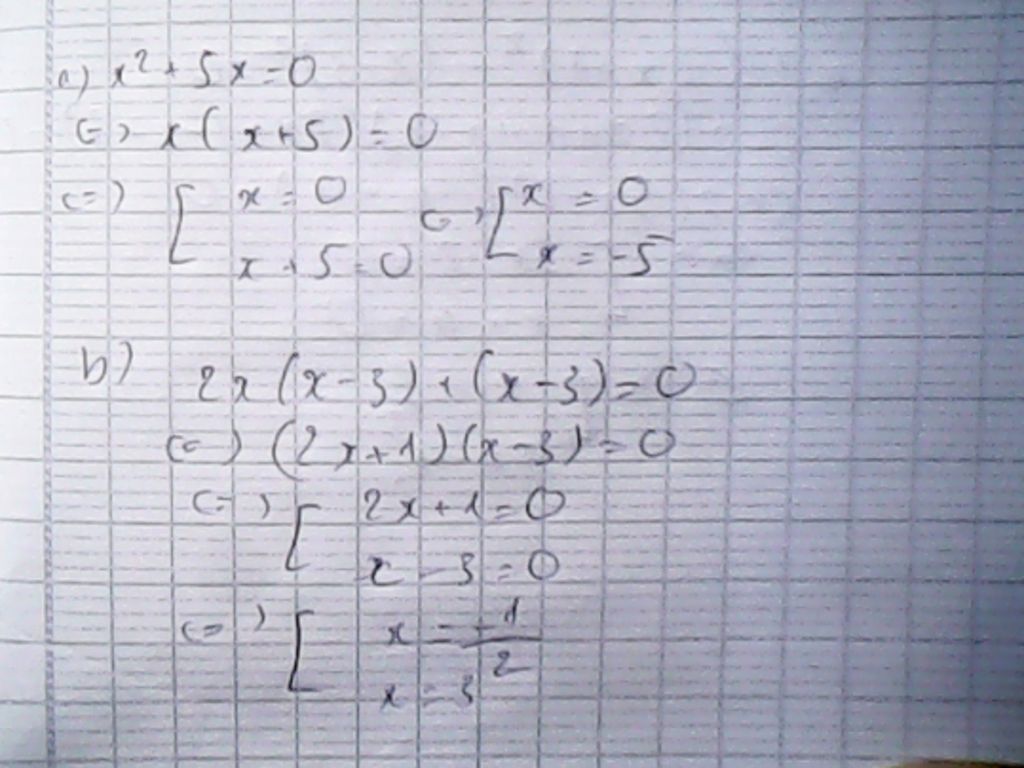 a) x² + 5x = 0
<=> x( x+5) = 0
<=> [ x = 0
x + 5 = 0 <=> [ x = 0
x = -5
b) 2x (x - 3) + (x - 3) = 0
<=> (2x + 1)(x - 3) = 0
<=> [ 2x + 1 = 0
x - 3 = 0
<=> [ x = -1/2
x = 3